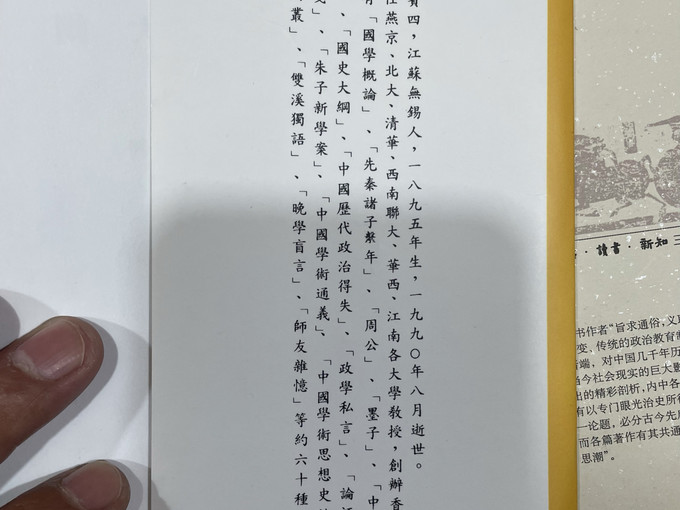 賓四，江蘇無錫人，一八九五年生，一九九〇年八月逝世。
任燕京、北大、清華、西南聯大、華西、江南各大學教授，創辦香
「國學概論」、「先秦諸子繫年」、「周公」、「墨子」、「中
、「國史大綱」、「中國歷代政治得失」、「政學私言」、「論
」、「朱子新學案」、「中國學術通義」、「中國學術思想史
叢」、「雙溪獨語」、「晚學盲言」、「師友雜憶」等約六十種
·讀書·新知三
书作者“旨求通俗，义
变、传统的政治教育
端，对中国几千年历
当今社会现实的巨大影
出的精彩剖析，内中各
有以专门眼光治史所
一论题，必分古今先
而各篇著作有其共通
思潮”。